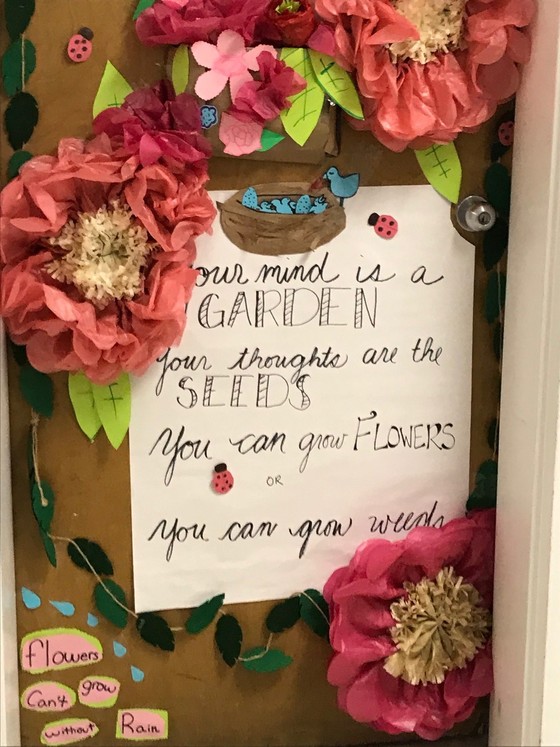 our mind is a
GARDEN
your thoughts are the
SEEDS
You can grow FLOWERS
OR
you can grow weeds
flowers
Can't grow
without Rain